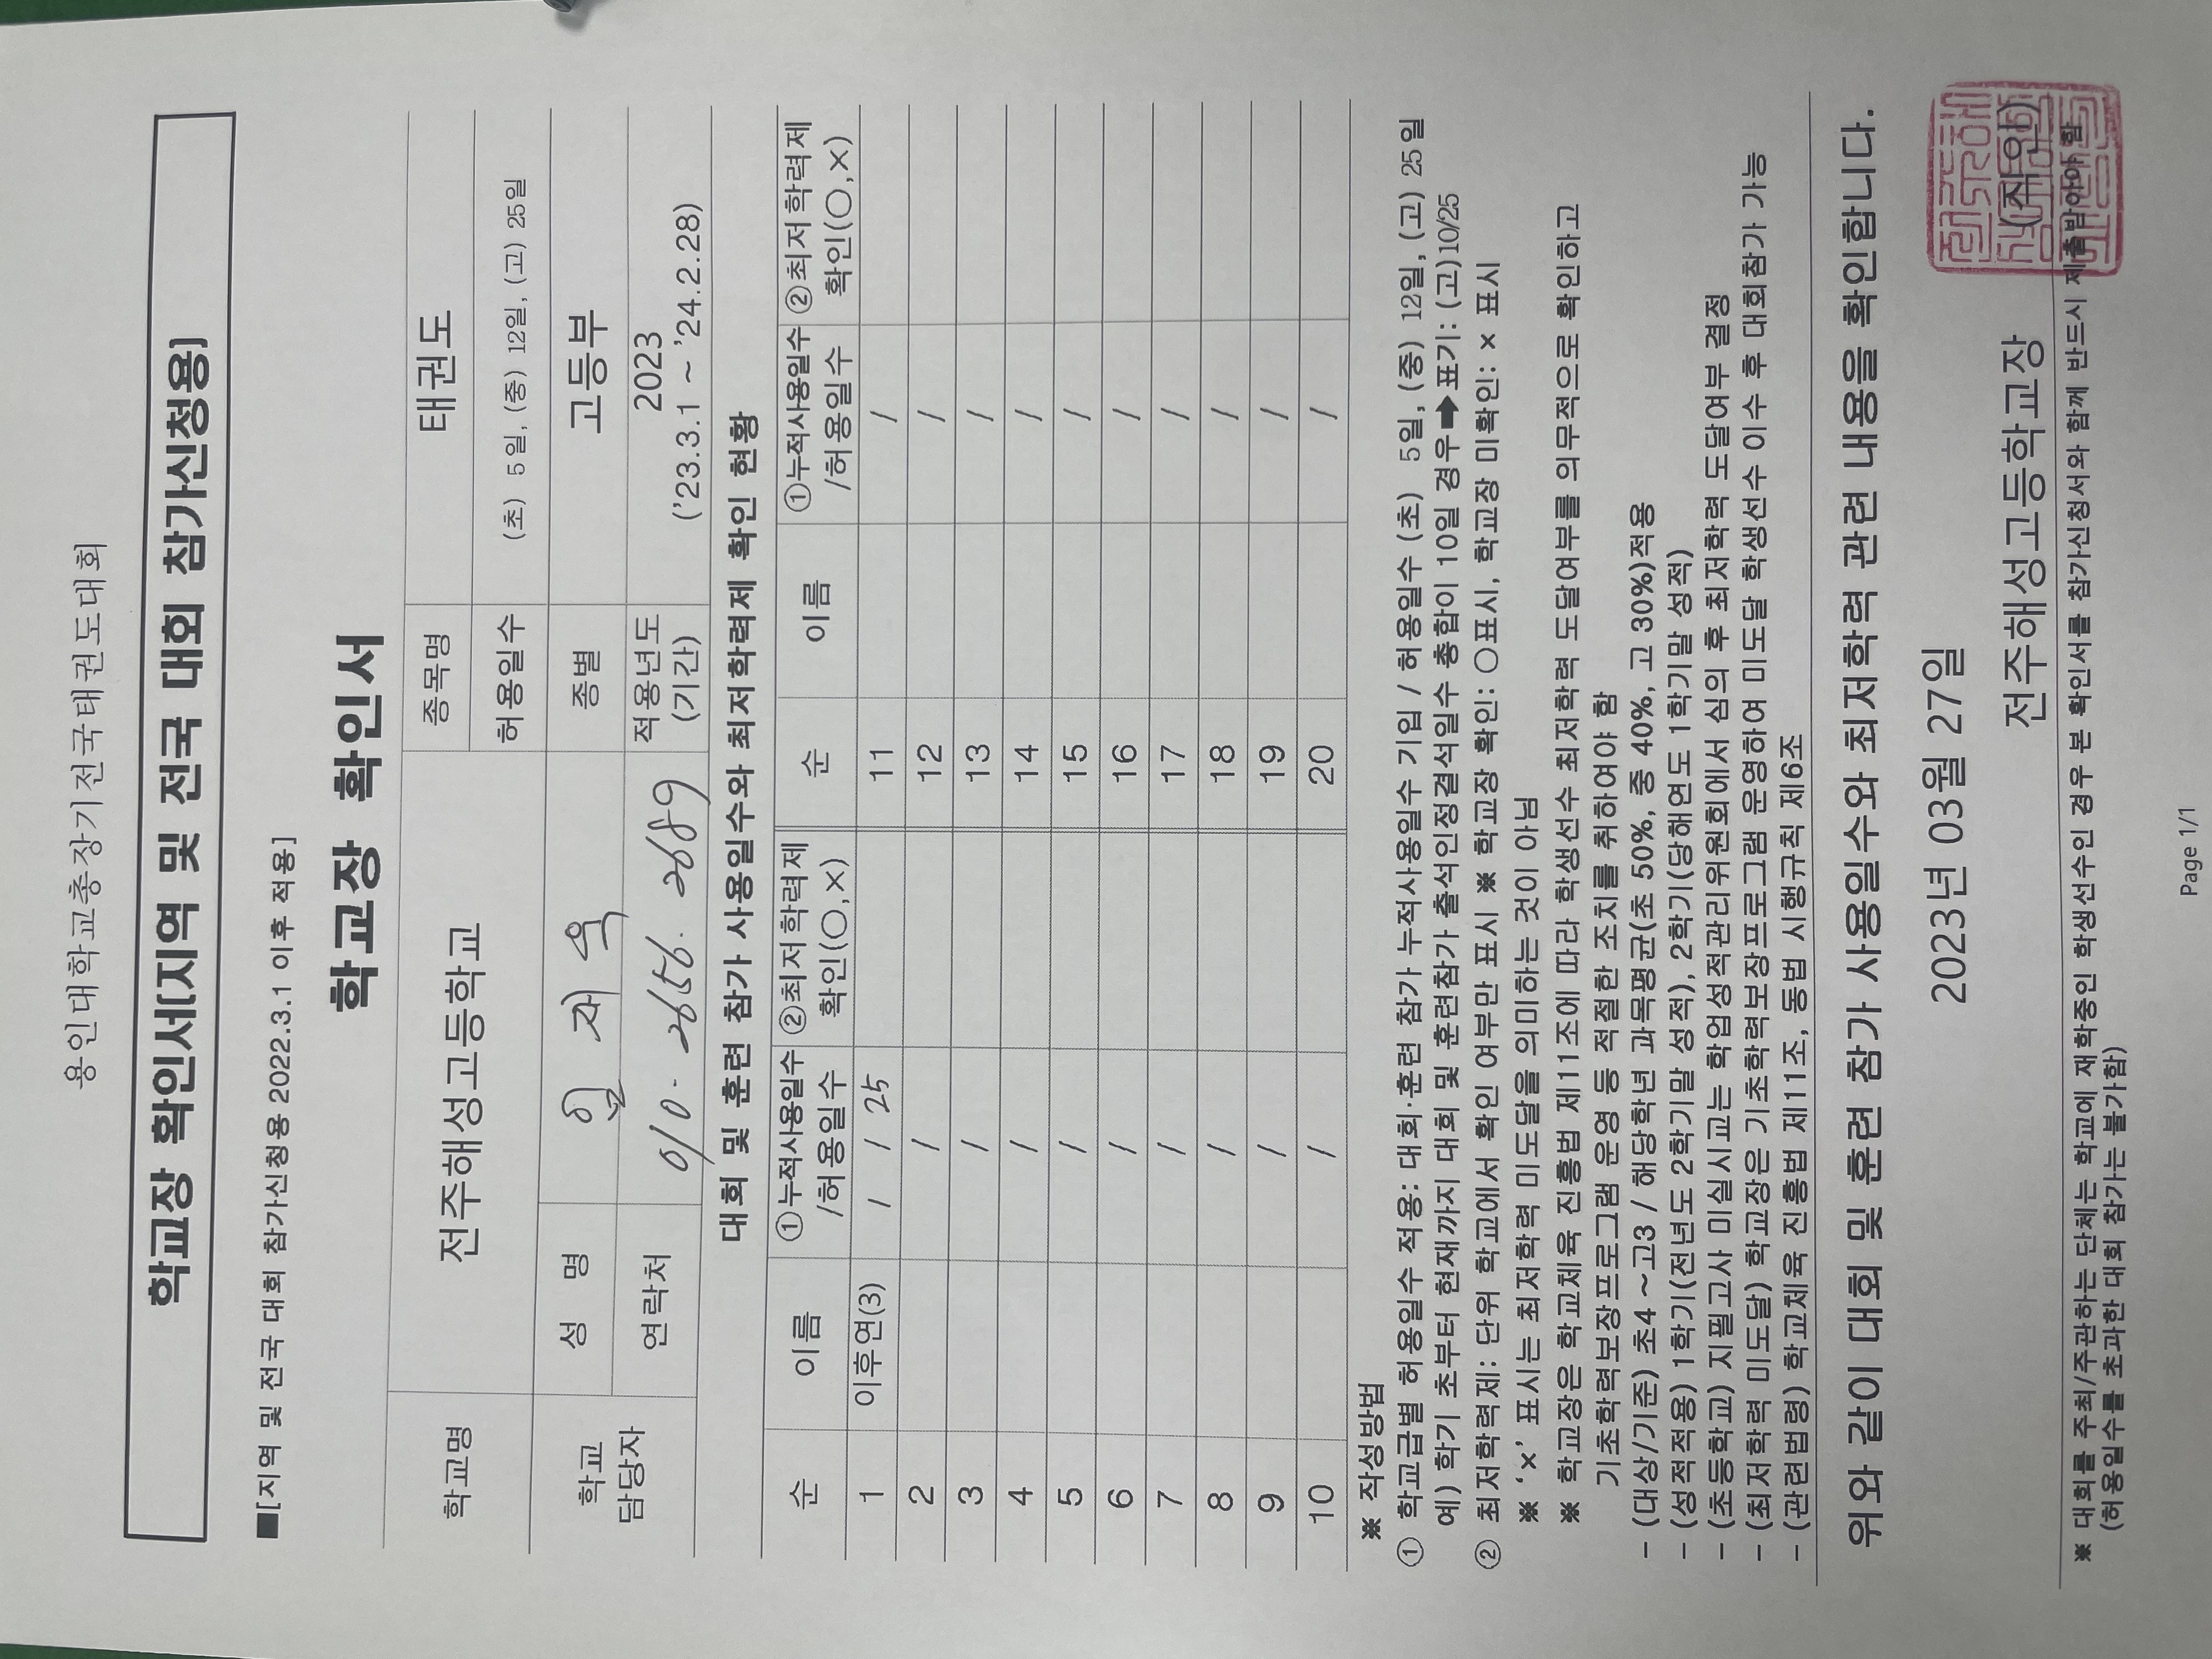 용인대학교총장기전국태권도대회
학교장 확인서[지역 및 전국 대회 참가신청용]
■[지역 및 전국 대회 참가신청용 2022.3.1 이후 적용]
학교장 확인서
학교명 전주해성고등학교 종목명 태권도
허용일수 (초) 5일, (중) 12일, (고) 25일
학교 담당자 성 명 종별 고등부
연락처 010. 2656. 2689 적용년도 (기간) 2023 ('23.3.1 ~ '24.2.28)
대회 및 훈련 참가 사용일수와 최저학력제 확인 현황
순 이름 ①누적사용일수 /허용일수 ②최저학력제 확인(○,×) 순 이름 ①누적사용일수 /허용일수 ②최저학력제 확인(○,×)
1 이후연(3) 1 / 25 11 /
2 / 12 /
3 / 13 /
4 / 14 /
5 / 15 /
6 / 16 /
7 / 17 /
8 / 18 /
9 / 19 /
10 / 20 /
※ 작성방법
① 학교급별 허용일수 적용: 대회·훈련 참가 누적사용일수 기입 / 허용일수 (초) 5일, (중) 12일, (고) 25일
예) 학기 초부터 현재까지 대회 및 훈련참가 출석인정결석일수 총합이 10일 경우➡표기: (고)10/25
② 최저학력제: 단위 학교에서 확인 여부만 표시 ※ 학교장 확인: ○표시, 학교장 미확인: × 표시
※ '×' 표시는 최저학력 미도달을 의미하는 것이 아님
※ 학교장은 학교체육 진흥법 제11조에 따라 학생선수 최저학력 도달여부를 의무적으로 확인하고
기초학력보장프로그램 운영 등 적절한 조치를 취하여야 함
- (대상/기준) 초4 ~고3 / 해당학년 과목평균(초 50%, 중 40%, 고 30%)적용
- (성적적용) 1학기(전년도 2학기말 성적), 2학기(당해연도 1학기말 성적)
- (초등학교) 지필고사 미실시교는 학업성적관리위원회에서 심의 후 최저학력 도달여부 결정
- (최저학력 미도달) 학교장은 기초학력보장프로그램 운영하여 미도달 학생선수 이수 후 대회참가 가능
- (관련법령) 학교체육 진흥법 제11조, 동법 시행규칙 제6조
위와 같이 대회 및 훈련 참가 사용일수와 최저학력 관련 내용을 확인합니다.
2023년 03월 27일
전주해성고등학교장 (직인)
※ 대회를 주최/주관하는 단체는 학교에 재학중인 학생선수인 경우 본 확인서를 참가신청서와 함께 반드시 제출받아야 함
(허용일수를 초과한 대회 참가는 불가함)
Page 1/1